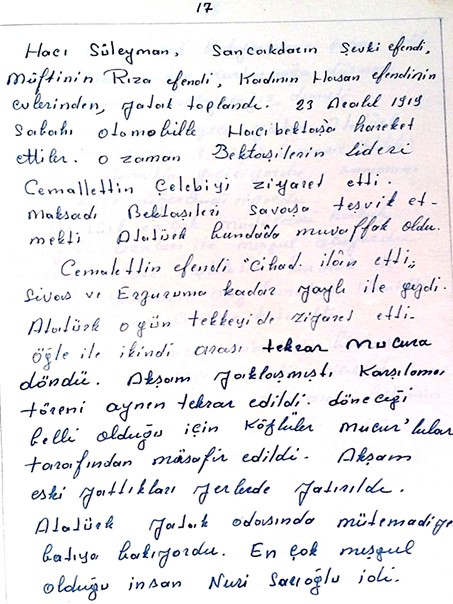 17
Hacı Süleyman, Sancakdarın Şevki efendi,
Müftinin Rıza efendi, Kadının Hasan efendinin
evlerinden, yatak toplandı. 23 Aralık 1919
Sabahı otomobille Hacıbektaşa hareket
ettiler. o zaman Bektaşilerin lideri
Cemallettin Çelebiyi ziyaret etti.
maksadı Bektaşileri savaşa teşvik et-
mekti Atatürk bundada muvaffak oldu.
Cemalettin efendi "Cihad ilân etti„
Sivas ve Erzuruma kadar yaylı ile gezdi.
Atatürk o gün tekkeyi de ziyaret etti.
öğle ile ikindi arası tekrar Mucura
döndü. Akşam yaklaşmıştı Karşılama
töreni aynen tekrar edildi. döneceği
belli olduğu için Köylüler mucur'lular
tarafından müsafir edildi. Akşam
eski yattıkları yerlerde yatırıldı.
Atatürk yatak odasında mütemadiye
batıya bakıyordu. En çok meşgul
olduğu insan Nuri Sacıoğlu idi.